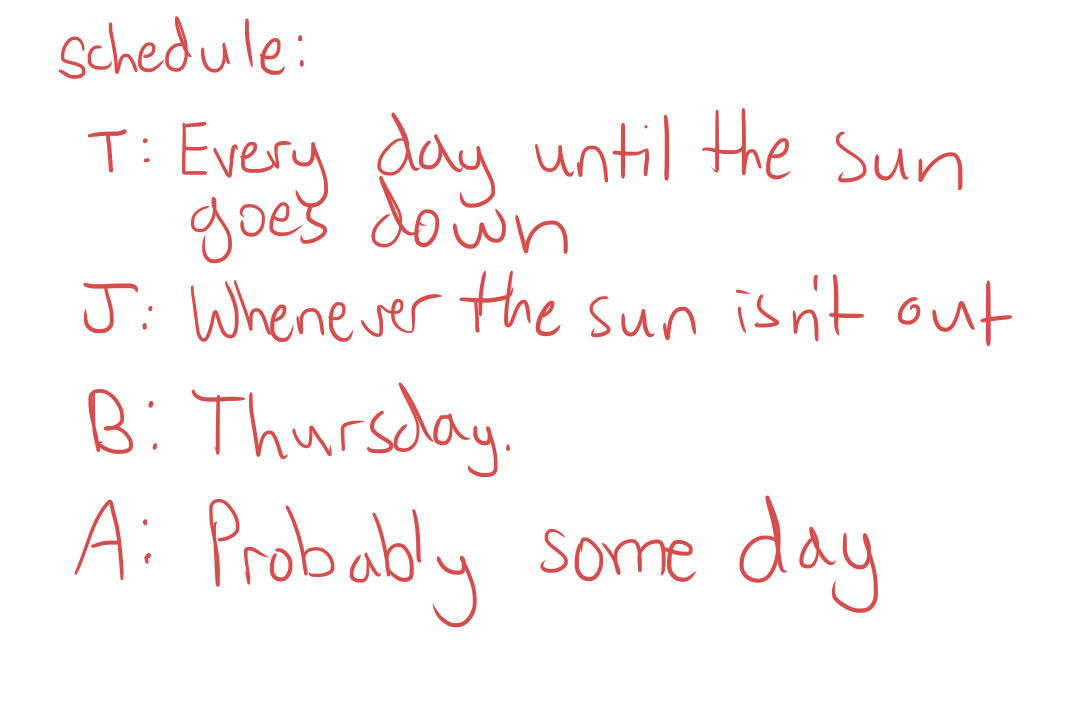 schedule:
T: Every day until the sun
goes down
J: Whenever the sun isn't out
B: Thursday.
A: Probably some day